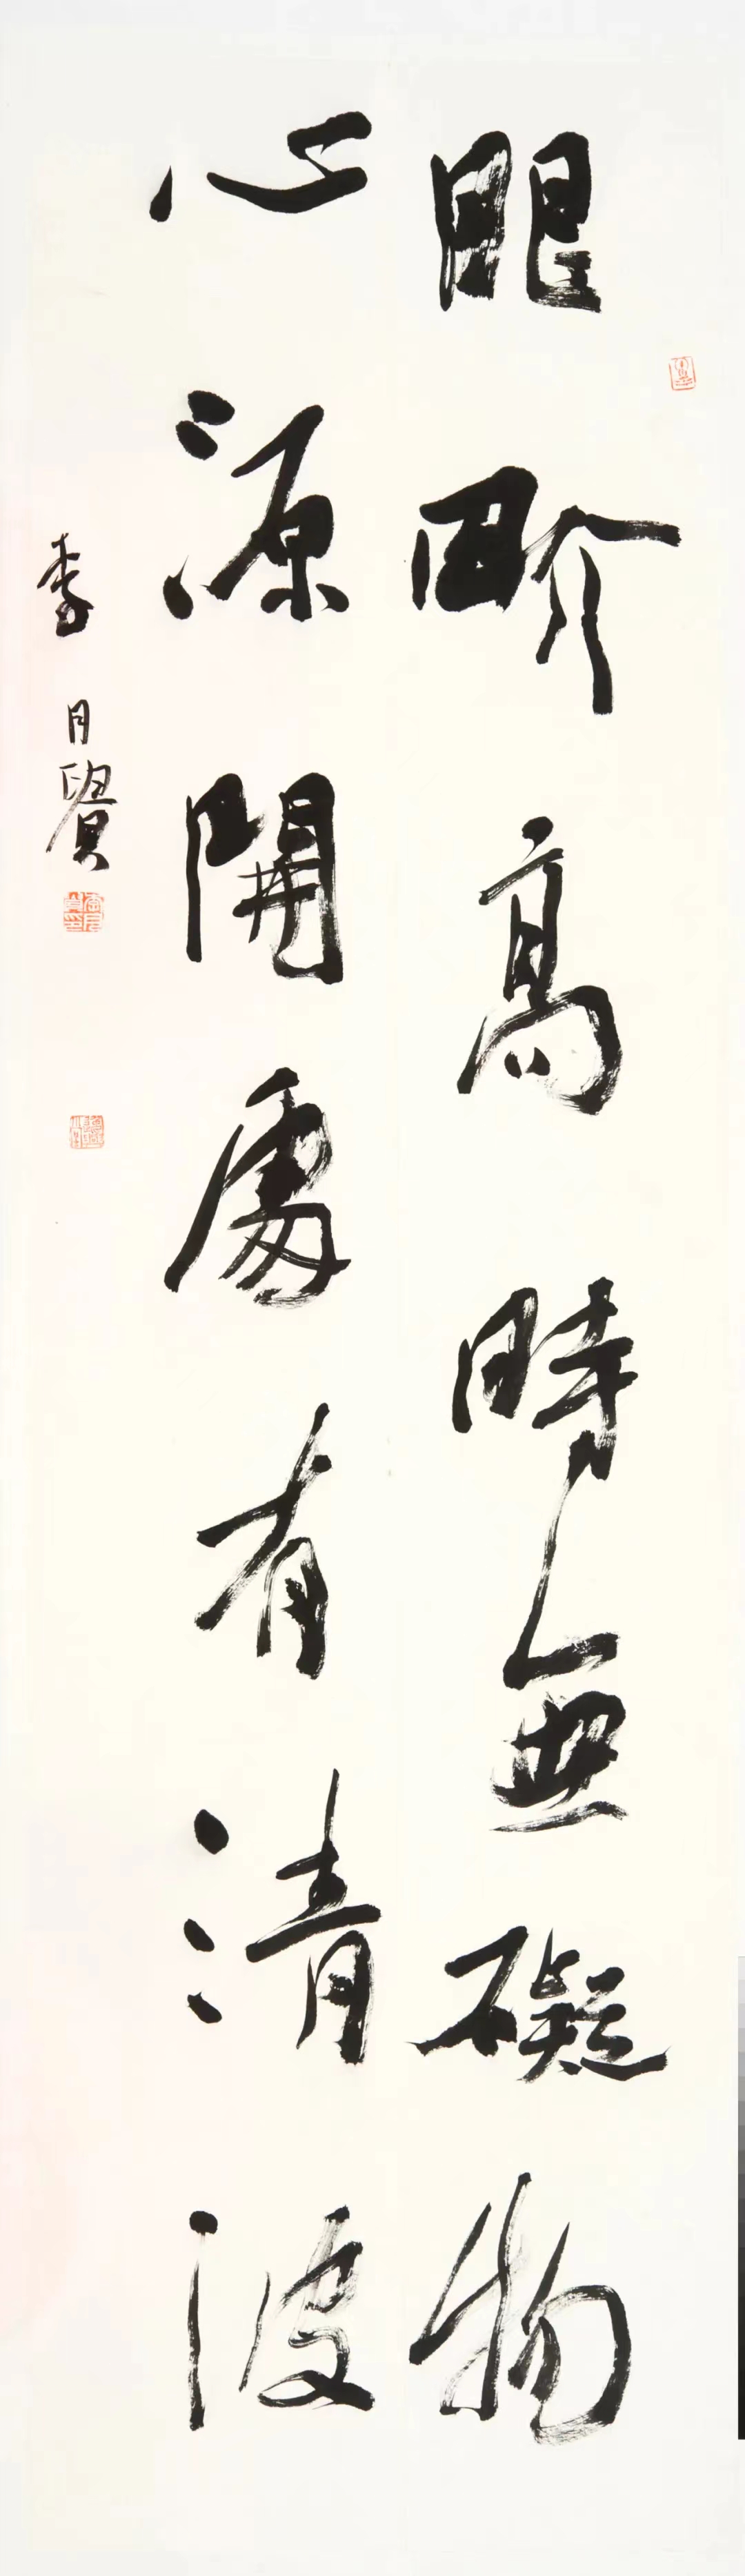 眼界高時無礙物
心源開處有清波
李月賢